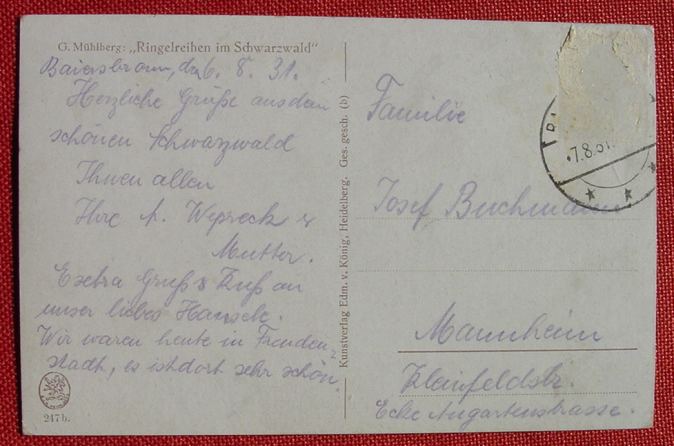 G. Mühlberg: „Ringelreihen im Schwarzwald"
Baiersbronn, d. 6. 8. 31.
Herzliche Grüße aus dem
schönen Schwarzwald
Ihnen allen
Ihre A. &
Mutter.
Extra Gruß & Kuß an
unser liebes
Wir waren heute in Freuden-
stadt, es ist dort sehr schön.
247 b.
Kunstverlag Edm. v. König, Heidelberg. Ges. gesch. (b)
7.8.31
Familie
Josef Buchmann
Mannheim
Kleinfeldstr.
Ecke Augartenstrasse.